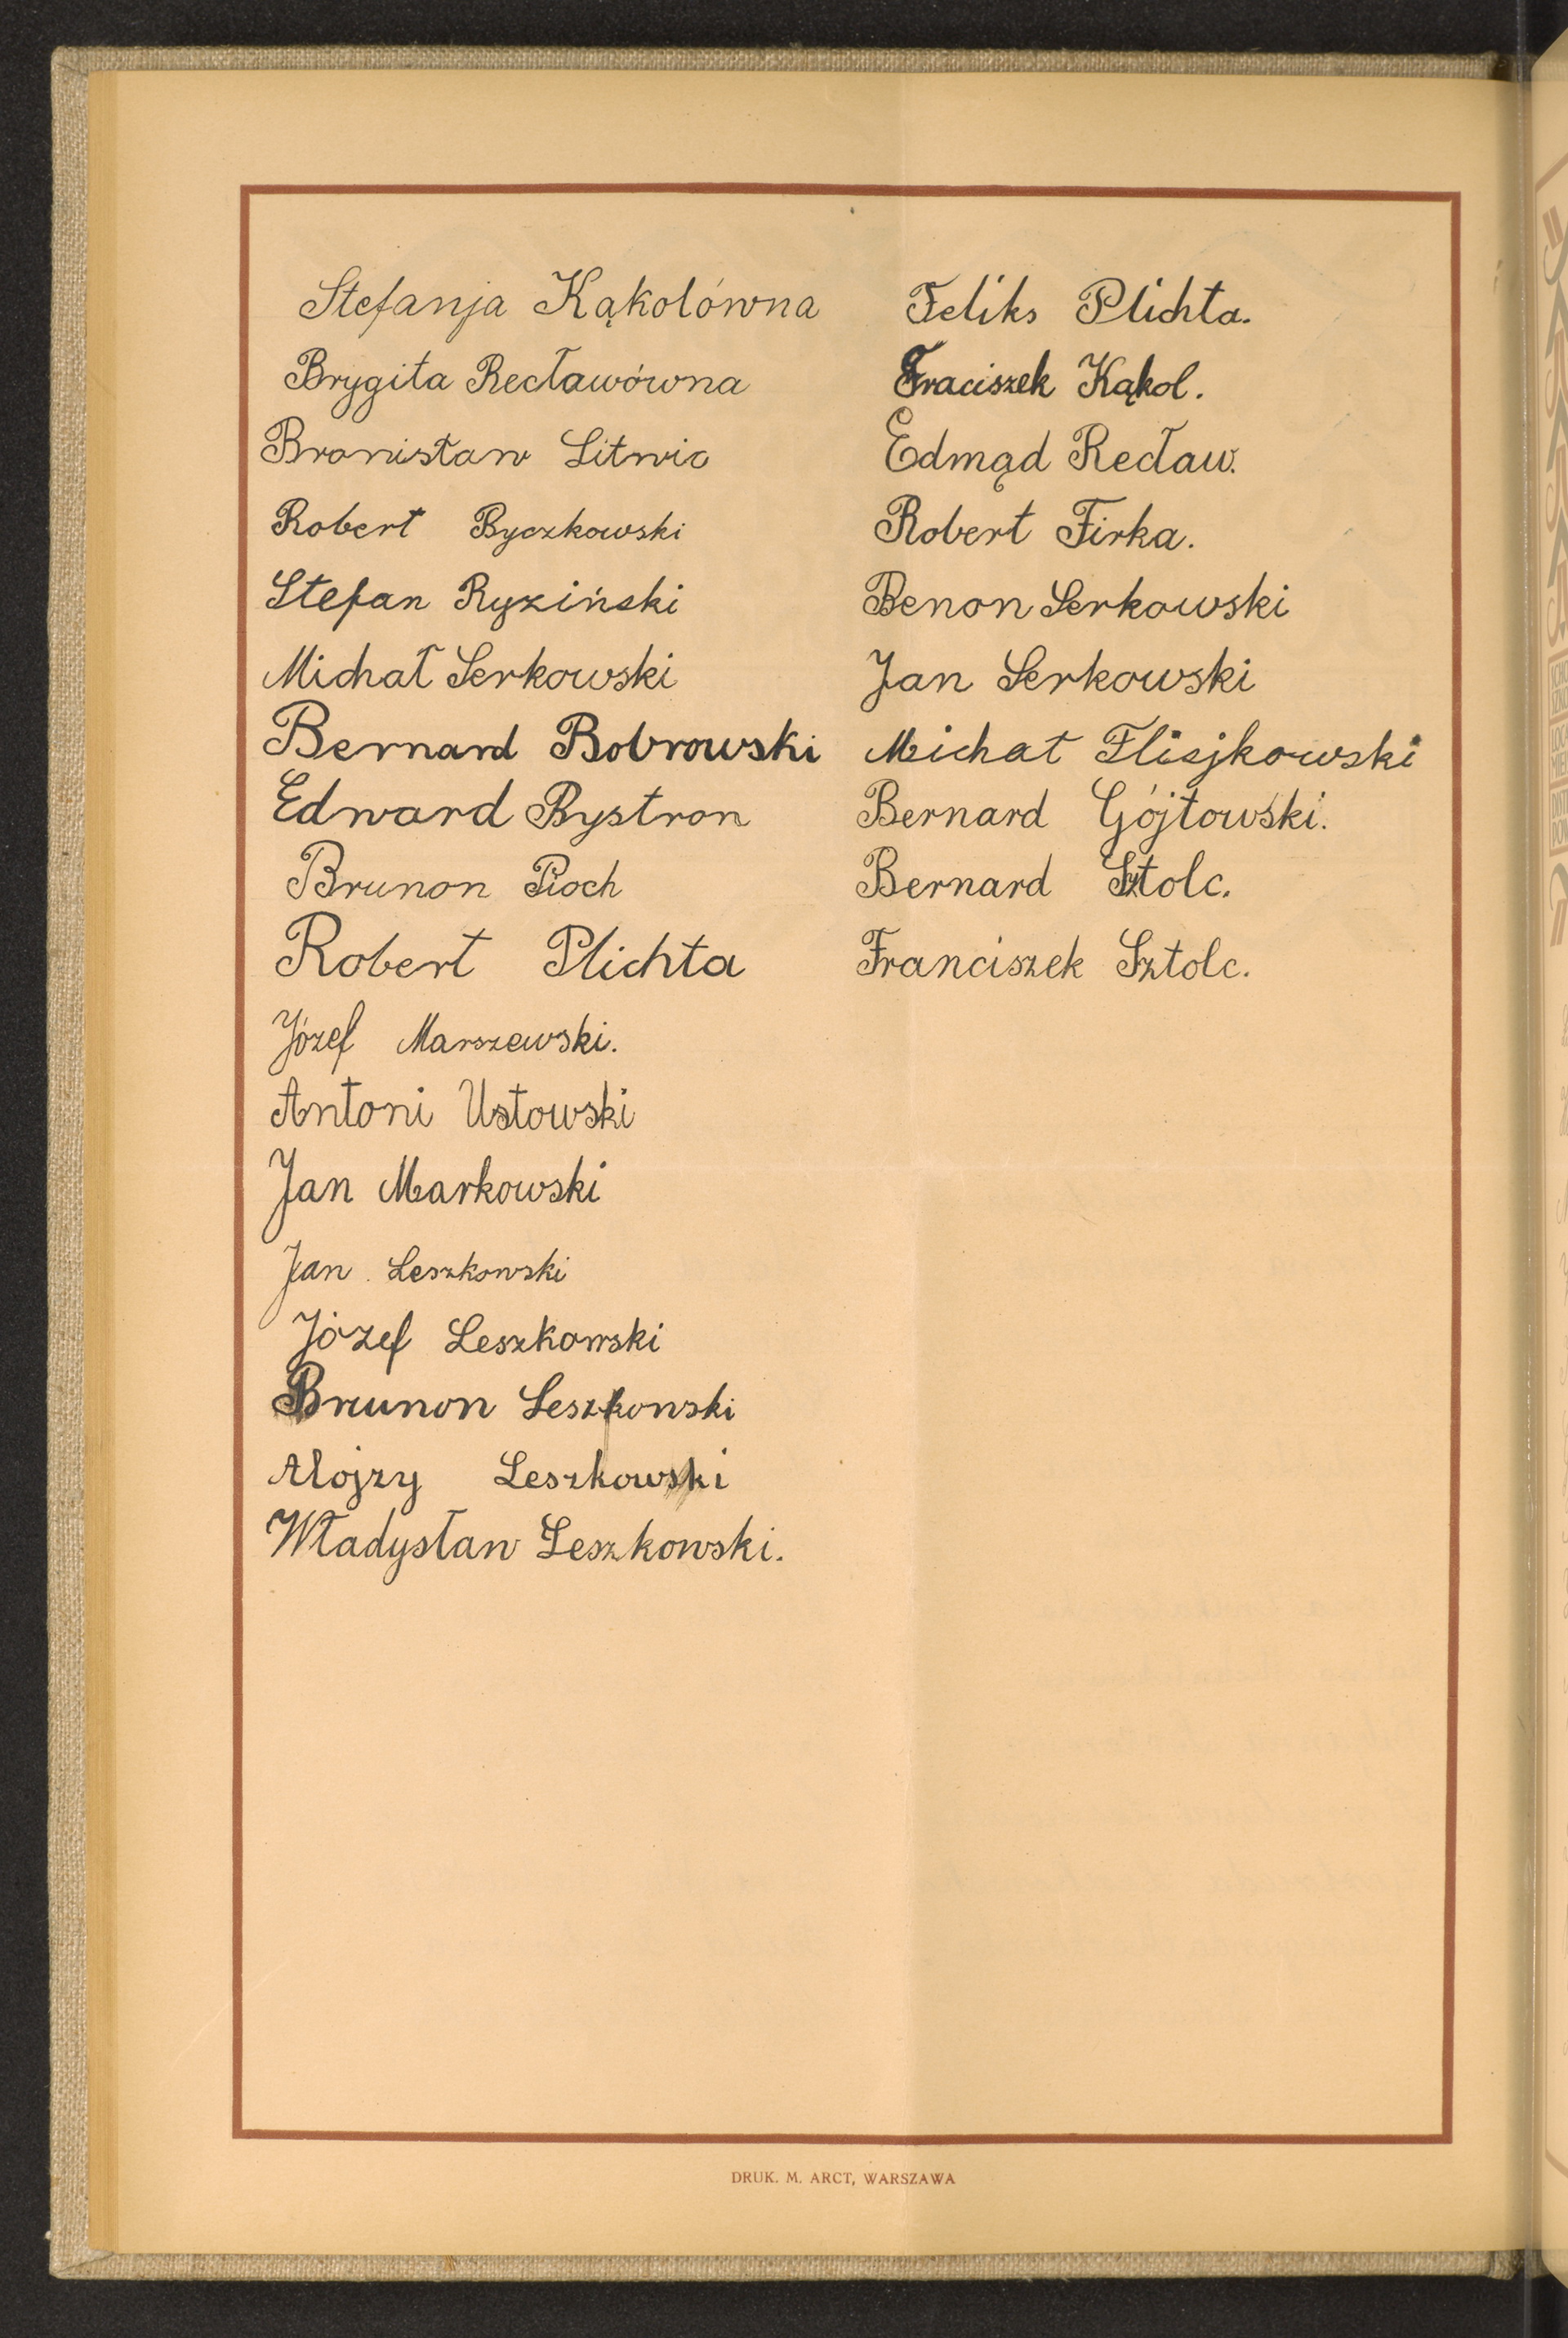 Stefanja Kąkolówna
Brygita Recławówna
Bronisław Litwic
Robert Byczkowski
Stefan Ryziński
Michał Serkowski
Bernard Bobrowski
Edward Bystron
Brunon Pioch
Robert Plichta
Józef Marszewski.
Antoni Ustowski
Jan Markowski
Jan Leszkowski
Józef Leszkowski
Brunon Leszkowski
Alojzy Leszkowski
Władysław Leszkowski.
Feliks Plichta.
Fraciszek Kąkol.
Edmąd Recław.
Robert Firka.
Benon Serkowski
Jan Serkowski
Michat Flisjkowski
Bernard Gójtowski.
Bernard Sztolc.
Franciszek Sztolc.
DRUK. M. ARCT, WARSZAWA